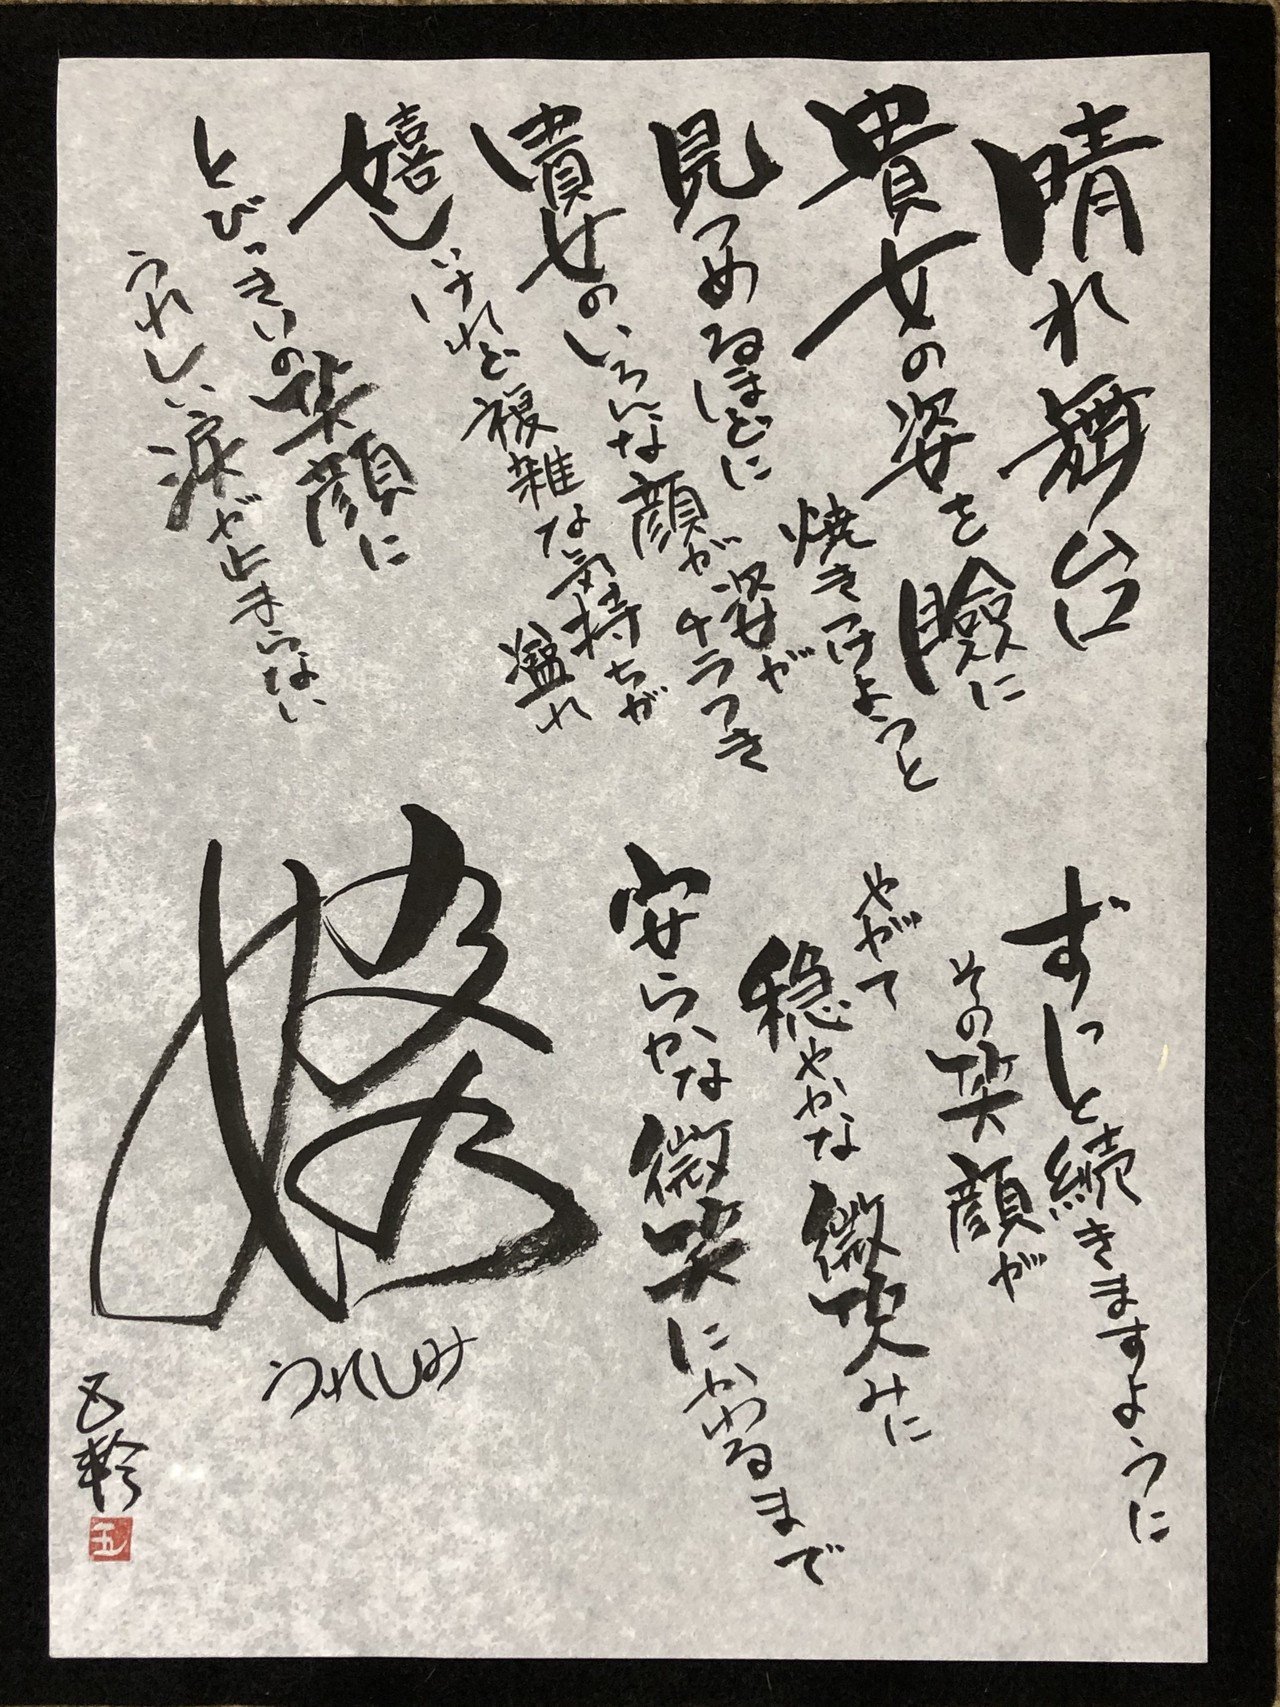 晴れ舞台
貴女の姿を瞼に
焼きつけようと
見つめるほどに
姿が
貴女のいろんな顔がチラつき
嬉しいけれど複雑な気持ちが
溢れ
とびっきりの笑顔に
うれしい涙が止まらない
ずっと続きますように
その笑顔が
やがて
穏やかな微笑みに
安らかな微笑にかわるまで
うれしみ